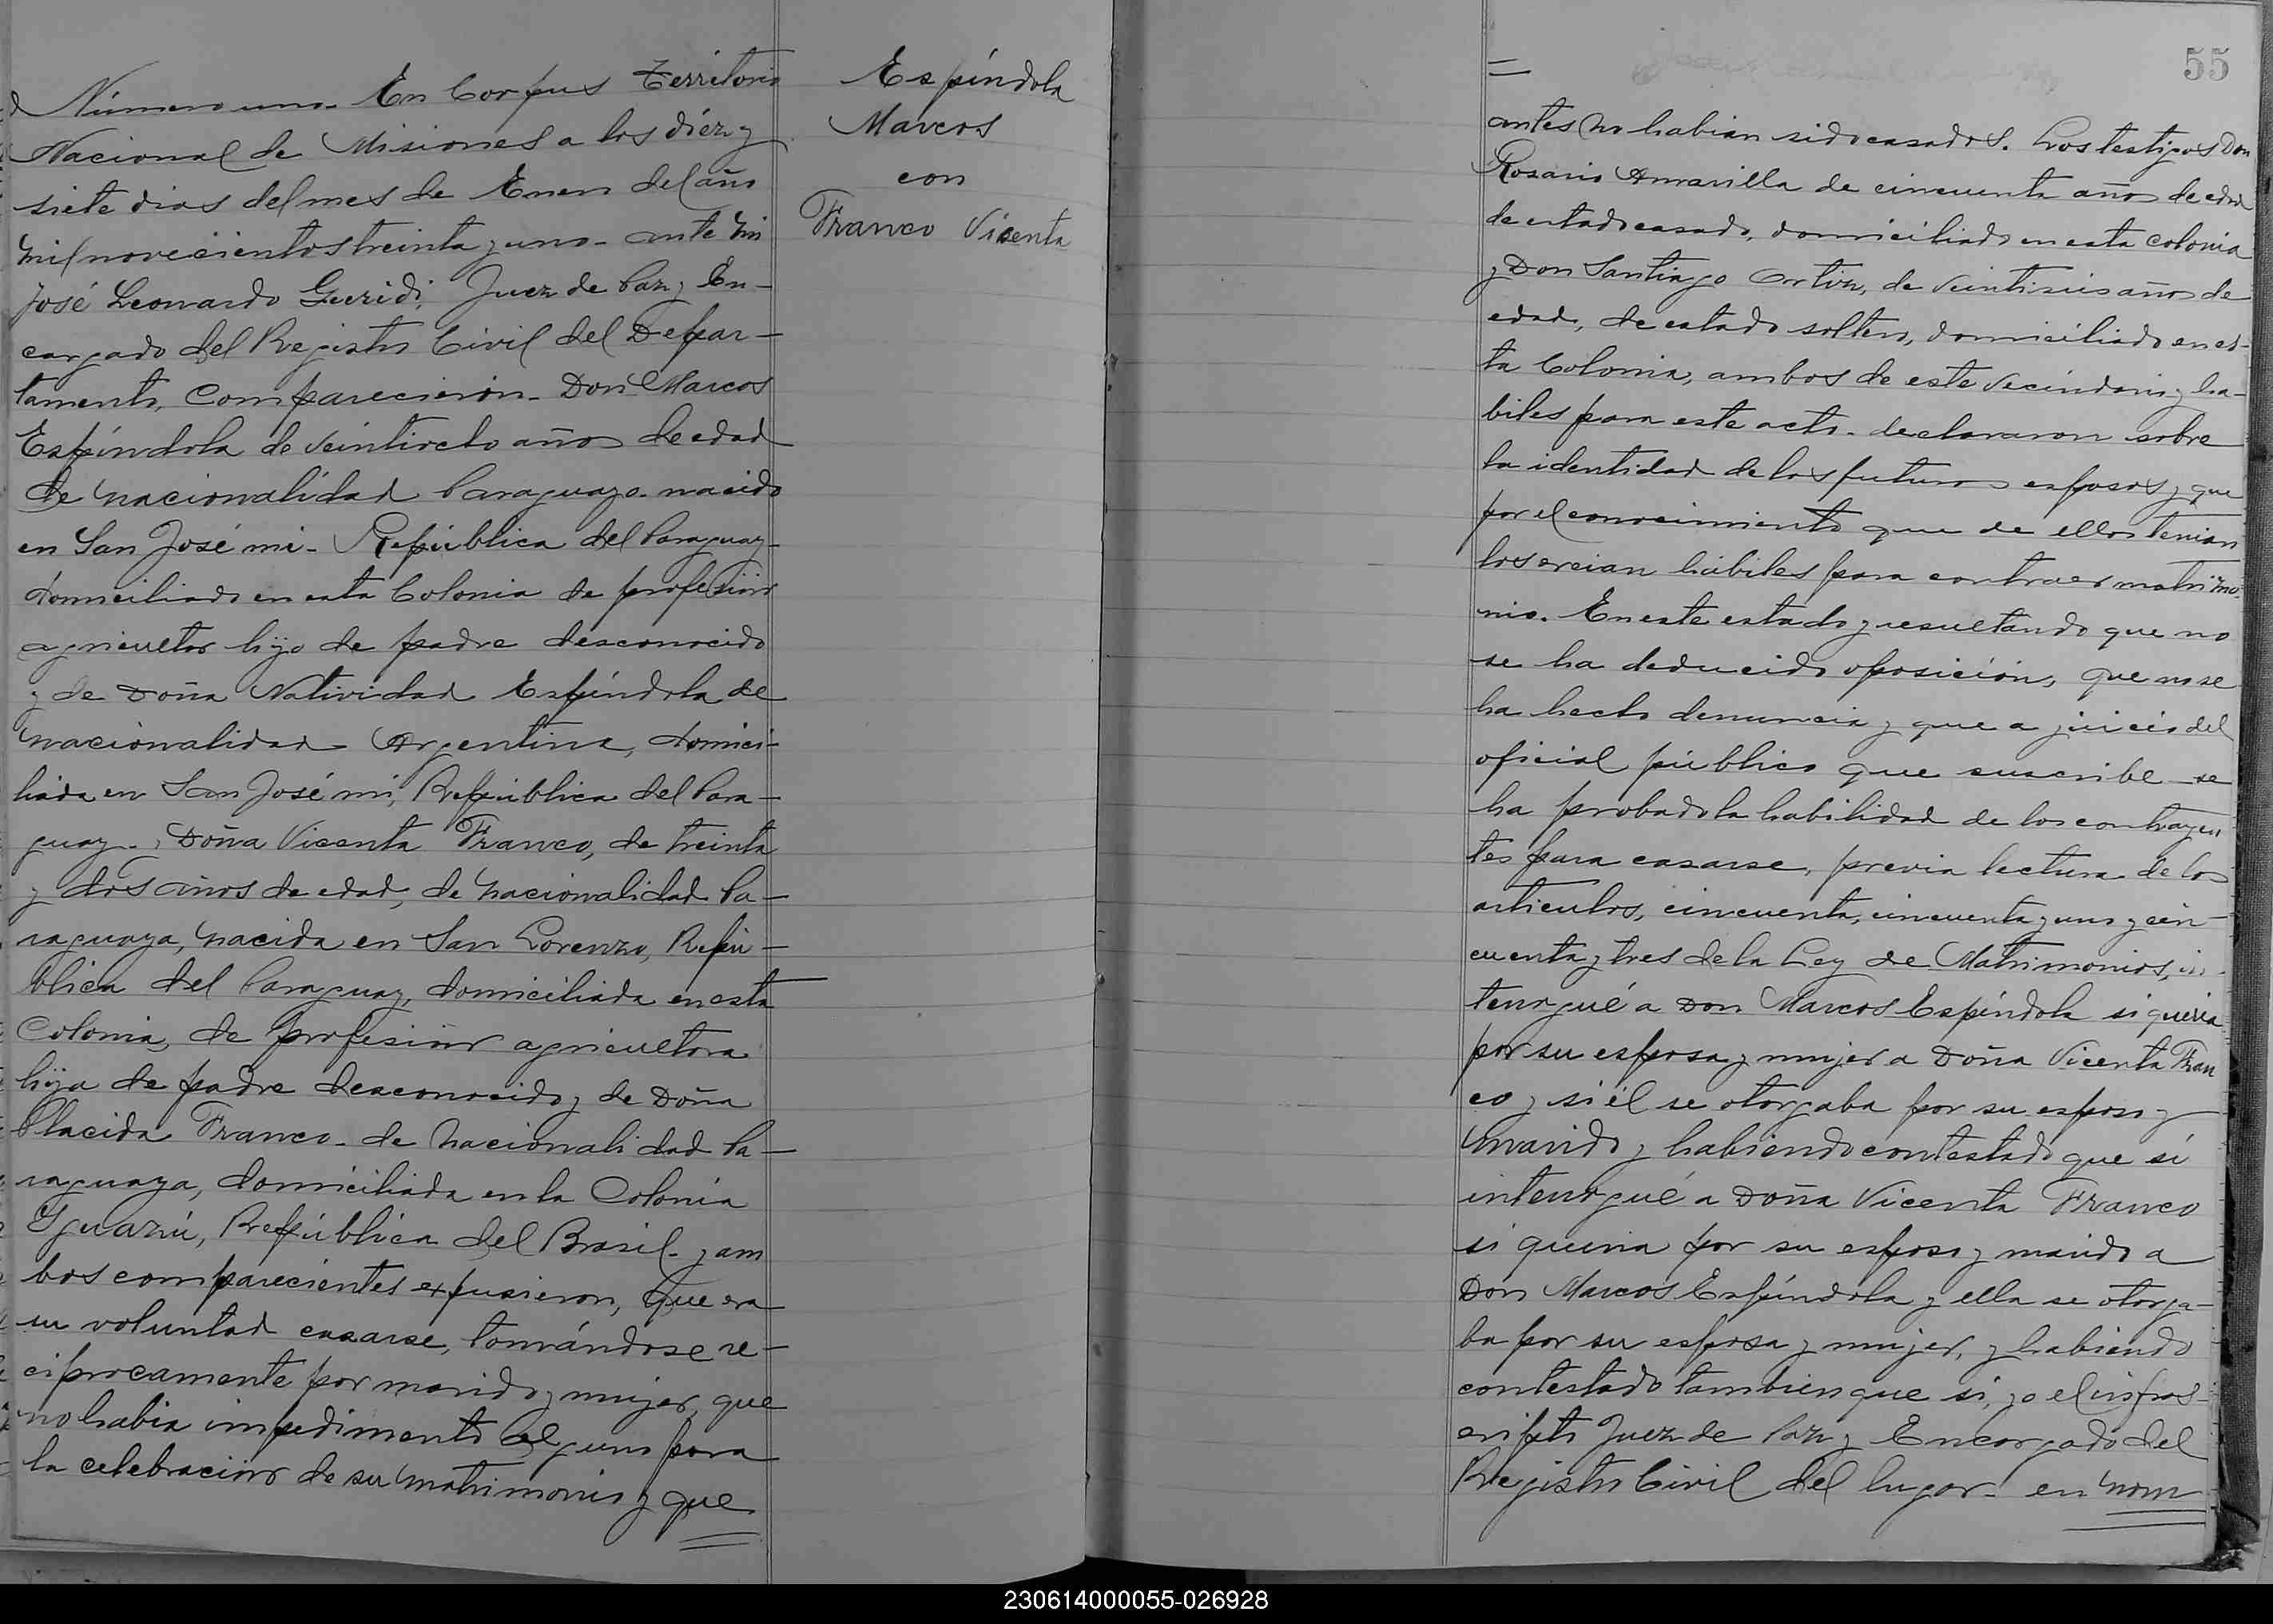 Número uno. En Corpus Territorio
Nacional de Misiones a los diéz y
siete dias del mes de Enero del año
mil novecientos treinta y uno - ante mi
José Leonardo Guridi, Juez de Paz y En-
cargado del Registro Civil del Depar-
tamento, Comparecieron - Don Marcos
Espíndola de veintiocho años de edad
de nacionalidad Paraguayo - nacido
en San José mi - República del Paraguay -
domiciliado en esta Colonia de profesión
agricultor hijo de padre desconocido
y de Doña Natividad Espíndola de
nacionalidad Argentina, domici-
liada en San José mi, República del Para-
guay - y Doña Vicenta Franco, de treinta
y dos años de edad, de nacionalidad Pa-
raguaya, nacida en San Lorenzo, Repú-
blica del Paraguay, domiciliada en esta
Colonia, de profesión agricultora
hija de padre desconocido y de Doña
Placida Franco - de nacionalidad Pa-
raguaya, domiciliada en la Colonia
Yguazú, República del Brasil - y am
bos comparecientes expusieron, Que era
su voluntad casarse, tomándose re-
ciprocamente por marido y mujer, que
no habia impedimento alguno para
la celebración de su matrimonio y que
Espíndola
Marcos
con
Franco Vicenta
55
antes no habian sido casados. Los testigos Don
Rosario Amarilla de cincuenta años de edad
de estado casado, domiciliado en esta colonia
y Don Santiago Ortiz, de veintiseis años de
edad, de estado soltero, domiciliado en es-
ta Colonia, ambos de este vecindario y ha-
biles para este acto - declararon sobre
la identidad de los futuros esposos y que
por el conocimiento que de ellos tenian
los creian hábiles para contraer matrimo-
nio. En este estado y resultando que no
se ha deducido oposición, que no se
ha hecho denuncia y que a juicio del
oficial público que suscribe - se
ha probado la habilidad de los contrayen
tes para casarse, previa lectura de los
articulos, cincuenta, cincuenta y uno y cin-
cuenta y tres de la Ley de Matrimonios, in-
terrogué a Don Marcos Espíndola si queria
por su esposa y mujer a Doña Vicenta Fran
co y si él se otorgaba por su esposo y
marido y habiendo contestado que sí
interrogué a Doña Vicenta Franco
si queria por su esposo y marido a
Don Marcos Espíndola y ella se otorga-
ba por su esposa y mujer, y habiendo
contestado tambien que si, yo el infras-
cripto Juez de Paz y Encargado del
Registro Civil del lugar - en nom
230614000055-026928